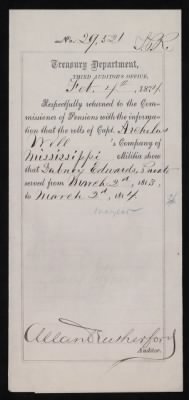 No. 29,521
Treasury Department,
THIRD AUDITOR'S OFFICE,
Feb. 4th, 1874.
Respectfully returned to the Com-
missioner of Pensions with the informa-
tion that the rolls of Capt. Archelus
Wells's Company of
Mississippi Militia show
that Edwards, Private
served from March 2d, 1813,
to March 2d, 1814.
Allan Rutherford
Auditor.